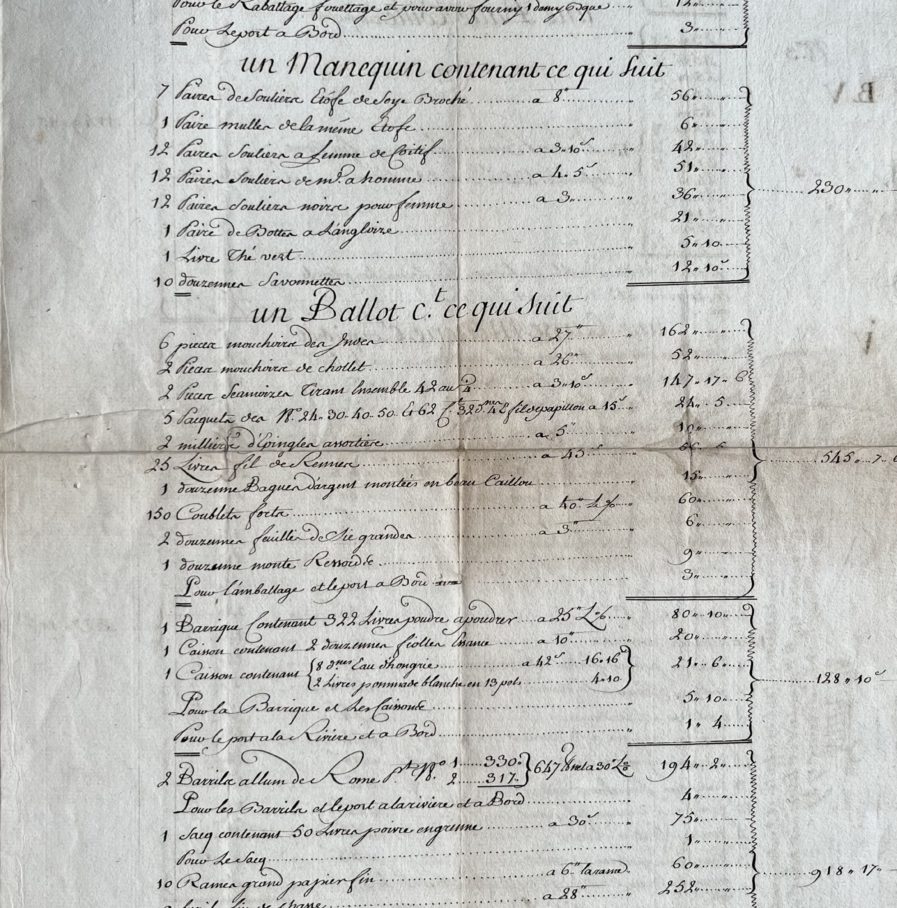 Pour le Rabattage fouettage et pour avoir fourny 1 demy Bque 12
Pour Le port a Bord 3
un Manequin contenant ce qui Suit
7 Paires de Souliers Etofe de Soye Broché a 8 56
1 Paire mulles de la même Etofe 6
12 Paires Souliers a femme de a 3.10 42
12 Paires Souliers de a homme a 4.5 51
12 Paires Souliers noirs pour femme a 3 36 230
1 Paire de Bottes a L'angloize 21
1 Livre Thé vert 5.10
10 douzennes Savonnettes 12.10
un Ballot c.t ce qui Suit
6 pieces mouchoirs des Indes a 27 162
2 Pieces mouchoirs de chollet a 26 52
2 Pieces Siamoizes Tirant Ensemble 42 au a 3.10 147.17.6
5 Pacquets des Nos 24.30.40.50 Et 62 fil de papillon a 15 24.5
2 milliers d'Epingles assorties a 5 10
25 Livres fil de Rennes a 45 56.5 545.7.6
1 douzenne Bagues d'argent montées en beau Caillou 15
150 Coublets forts a 40 60
2 douzennes feuilles de Sie grandes a 3 6
1 douzenne monte Ressorts 9
Pour l'emballage et le port a Bord 3
1 Barrique Contenant 322 Livres poudre a poudrer a 25 80.10
1 Caisson contenant 2 douzennes fiolles a 10 20
1 Caisson contenant 8 dnes Eau d'hongrie a 42 16.16 21.6
2 Livres pommade blanche en 13 pots 4.10 128.10
Pour la Barrique et Les Caissons 5.10
Pour le port a la Rivière et a Bord 1.4
2 Barrils allum de Rome No 1 330 647 net a 30 194.2
2 317
Pour les Barrils et le port a la rivière et a Bord 4
1 Sacq contenant 50 Livres poivre en grenne a 30 75
Pour Le Sacq 1
10 Rames grand papier fin a 6 la rame 60 918.17
a 28 252